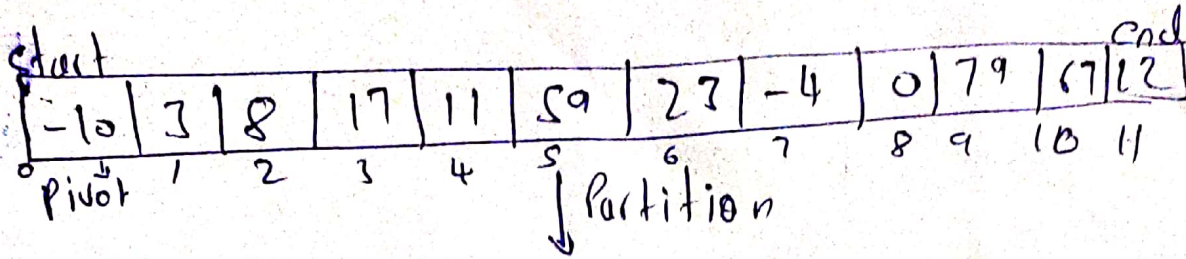 Start End
-10 3 8 17 11 59 23 -4 0 79 67 12
0 1 2 3 4 5 6 7 8 9 10 11
Pivot
Partition